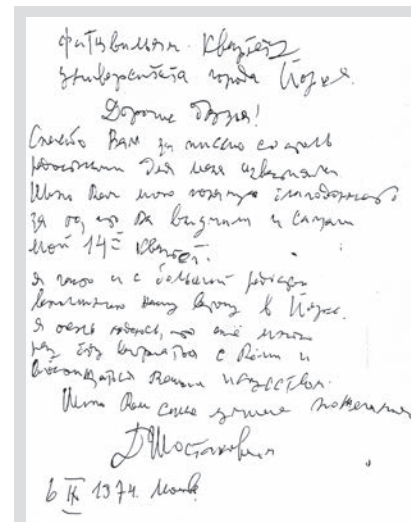 Фитцвильям-Квартету
университета города Йорка.
Дорогие друзья!
Спасибо Вам за письмо со столь
радостными для меня известиями
Шлю Вам мою горячую благодарность
за то, что Вы выучили и сыграли
мой 14й Квартет.
Я часто и с большой радостью
вспоминаю нашу встречу в Йорке.
Я очень надеюсь, что ещё много
раз буду встречаться с Вами и
восхищаться Вашим искусством.
Шлю Вам самые лучшие пожелания
ДШостакович
6 IX 1974. Москва